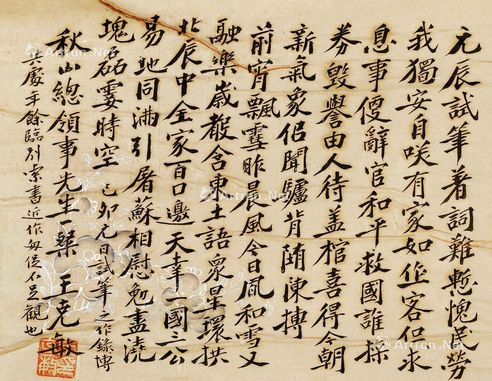 元辰試筆著詞難慙愧民勞
我獨安自咲有家如作客但求
息事便辭官和平救國誰操
券毀譽由人待蓋棺喜得今朝
新氣象佀聞驢背陳摶
前宵飄雪昨晨風今日風和雪又
融樂歲含東土語衆星環拱
北辰中全家百口邀天幸一國三公
易地同滿引屠蘇相慰勉盡澆
塊磊霎時空 己卯元日試筆之作錄博
秋山總領事先生粲 王克敏
共處年餘臨別索書近作不足觀也